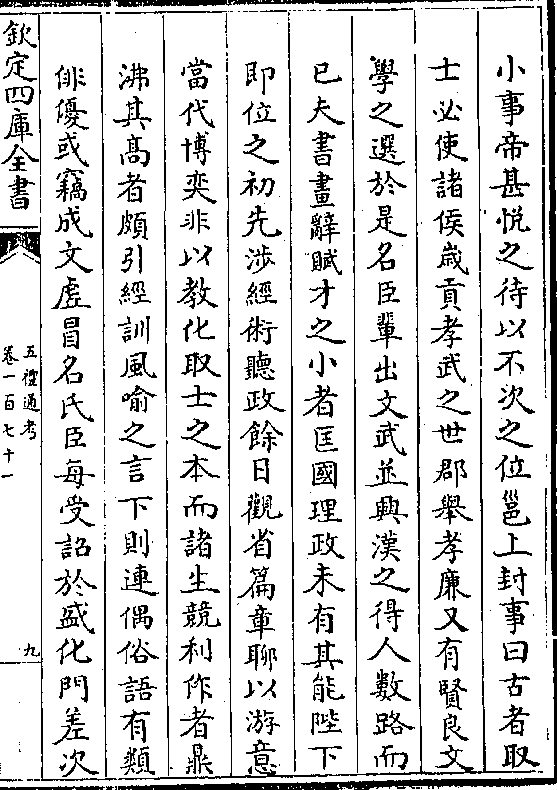 小事帝甚悦之待以不次之位邕上封事曰古者取
士必使諸侯歲貢孝武之世郡舉孝廉又有賢良文
學之選於是名臣輩出文武並興漢之得人數路而
已夫書畫辭賦才之小者匡國理政未有其能陛下
即位之初先涉經術聽政餘日觀省篇章聊以游意
當代博奕非以教化取士之本而諸生競利作者鼎
沸其髙者頗引經訓風喻之言下則連偶俗語有類
俳優或竊成文虚冒名氏臣每受詔於盛化門差次
欽定四庫全書
五禮通考
卷一百七十一
九